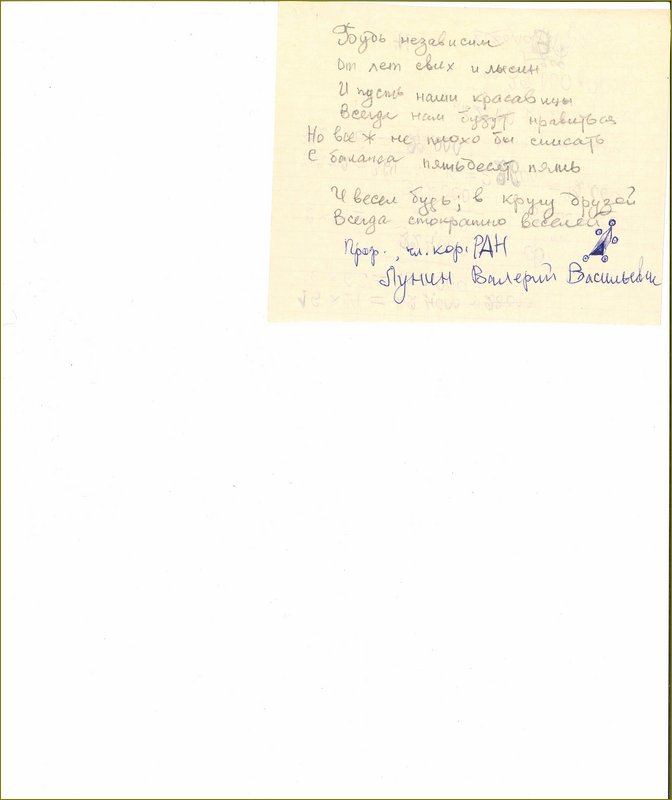 Будь независим
От лет свих и лысин
И пусть наши красавицы
Всегда нам будут нравиться
Но все ж не плохо бы списать
С баланса пятьдесят пять
И весел будь; в кругу друзей
Всегда стократно веселей
Проф., чл. кор. РАН
Лунин Валерий Васильевич